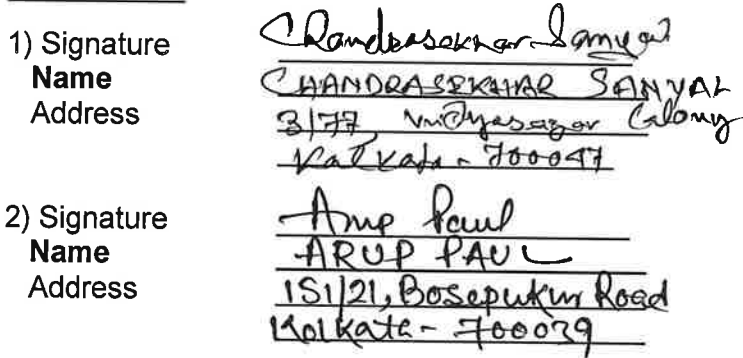 1) Signature Chandrasekhar Sanyal
Name CHANDRASEKHAR SANYAL
Address 3/77, Vidyasagar Colony
Kolkata - 700047
2) Signature Arup Paul
Name ARUP PAUL
Address 151/21, Bosepukur Road
Kolkata - 700039